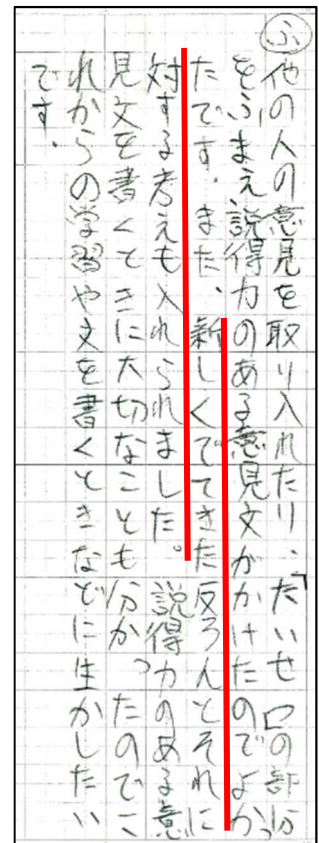 ふ
他の人の意見を取り入れたり、「たいせつ」の部分
をふまえ説得力のある意見文がかけたのでよかっ
たです。また、新しくでてきた反ろんとそれに
対する考えも入れられました。説得力のある意
見文を書くときに大切なことも分かったのでこ
れからの学習や文を書くときなどに生かしたい
です。